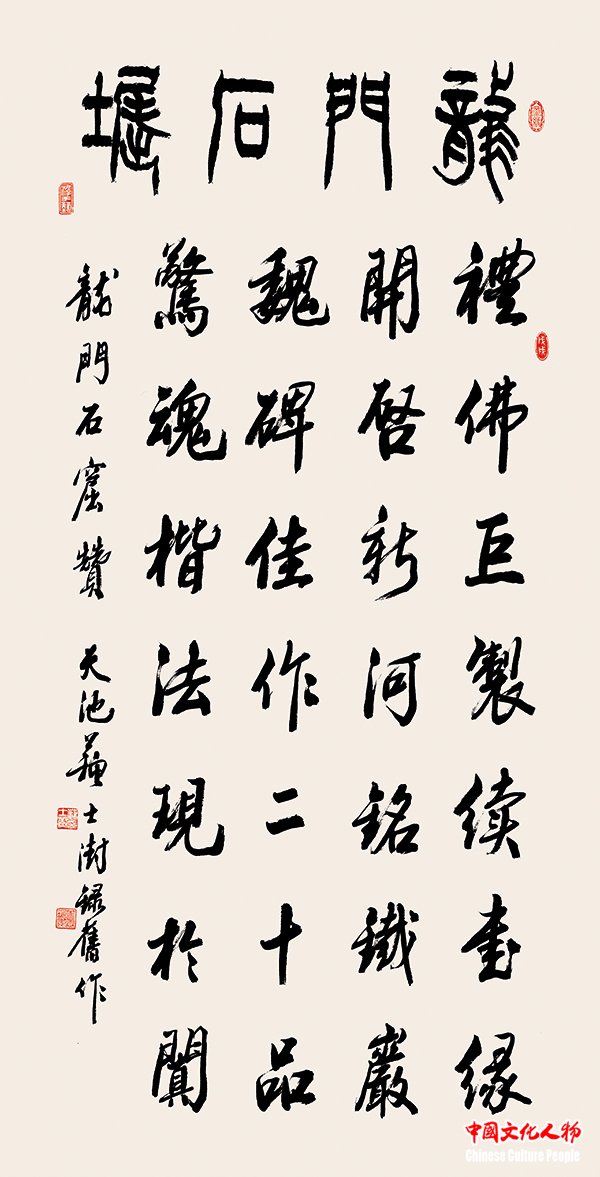 龍門石堀
禮佛巨製續書緣
開啓新河銘鐵巖
魏碑佳作二十品
驚魂楷法現於闐
龍門石窟贊 天池蘇士澍錄舊作
戊戌
中國文化人物
Chinese Culture People